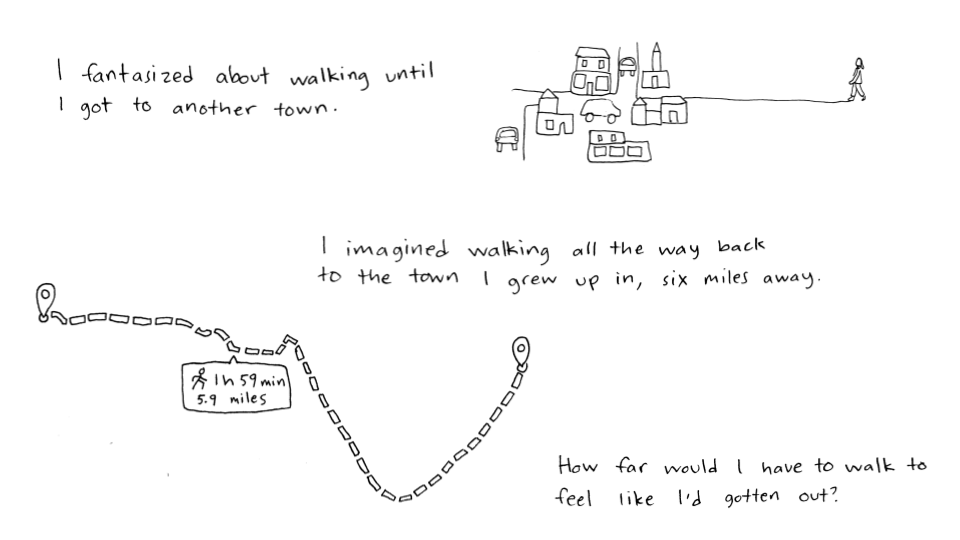 I fantasized about walking until
I got to another town.
I imagined walking all the way back
to the town I grew up in, six miles away.
1h 59min
5.9 miles
How far would I have to walk to
feel like I'd gotten out?